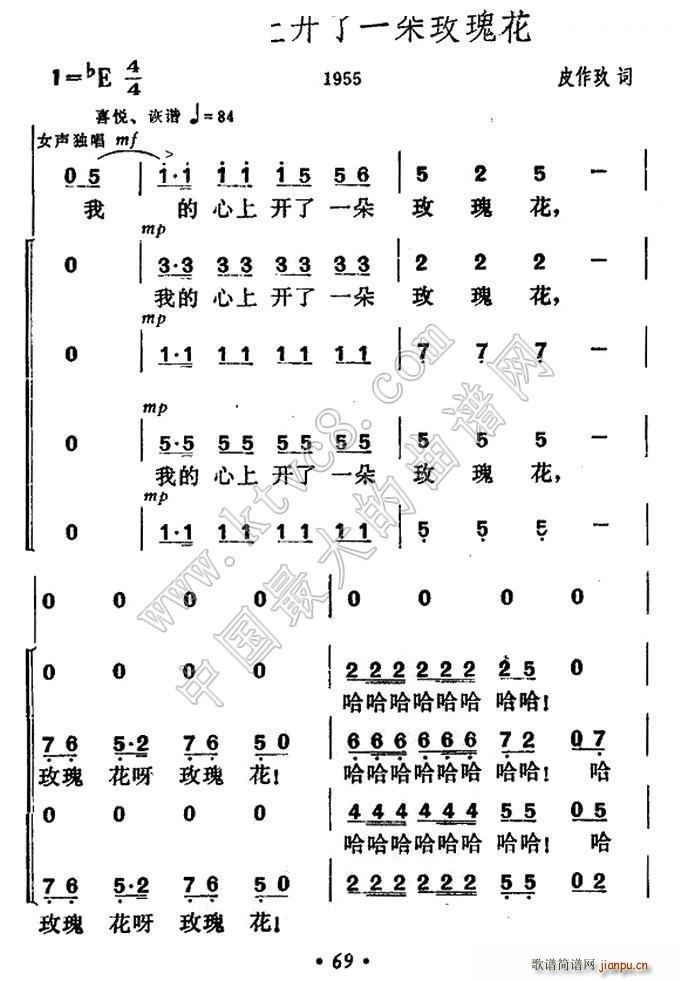 上开了一朵玫瑰花
1=♭E 4/4
1955
皮作玖 词
喜悦、诙谐 ♩=84
女声独唱 mf
0 5 | 1·1 1 1 5 5 5 6 | 5 2 5 — |
我 的 心上 开了 一朵 玫 瑰 花,
mp
0 | 3·3 3 3 3 3 3 3 | 2 2 2 — |
我的 心上 开了 一朵 玫 瑰 花,
mp
0 | 1·1 1 1 1 1 1 1 | 7 7 7 — |
mp
0 | 5·5 5 5 5 5 5 5 | 5 5 5 — |
我的 心上 开了 一朵 玫 瑰 花,
mp
0 | 1·1 1 1 1 1 1 1 | 5 5 5 — |
0 0 0 0 | 0 0 0 0 |
0 0 0 0 | 2 2 2 2 2 2 2 5 0 |
哈哈哈哈哈哈 哈哈!
7 6 5·2 7 6 5 0 | 6 6 6 6 6 6 7 2 0 7 |
玫瑰 花呀 玫瑰 花! 哈哈哈哈哈哈 哈哈! 哈
0 0 0 0 | 4 4 4 4 4 4 5 5 0 5 |
哈哈哈哈哈哈 哈哈! 哈
7 6 5·2 7 6 5 0 | 2 2 2 2 2 2 5 5 0 2 |
玫瑰 花呀 玫瑰 花!
• 69 •
www.ktvc8.com
中国最大的曲谱网
歌谱简谱网
jianpu.cn